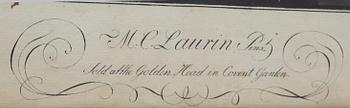 M.C Laurin Pinx.
Sold at the Golden Head in Covent Garden.